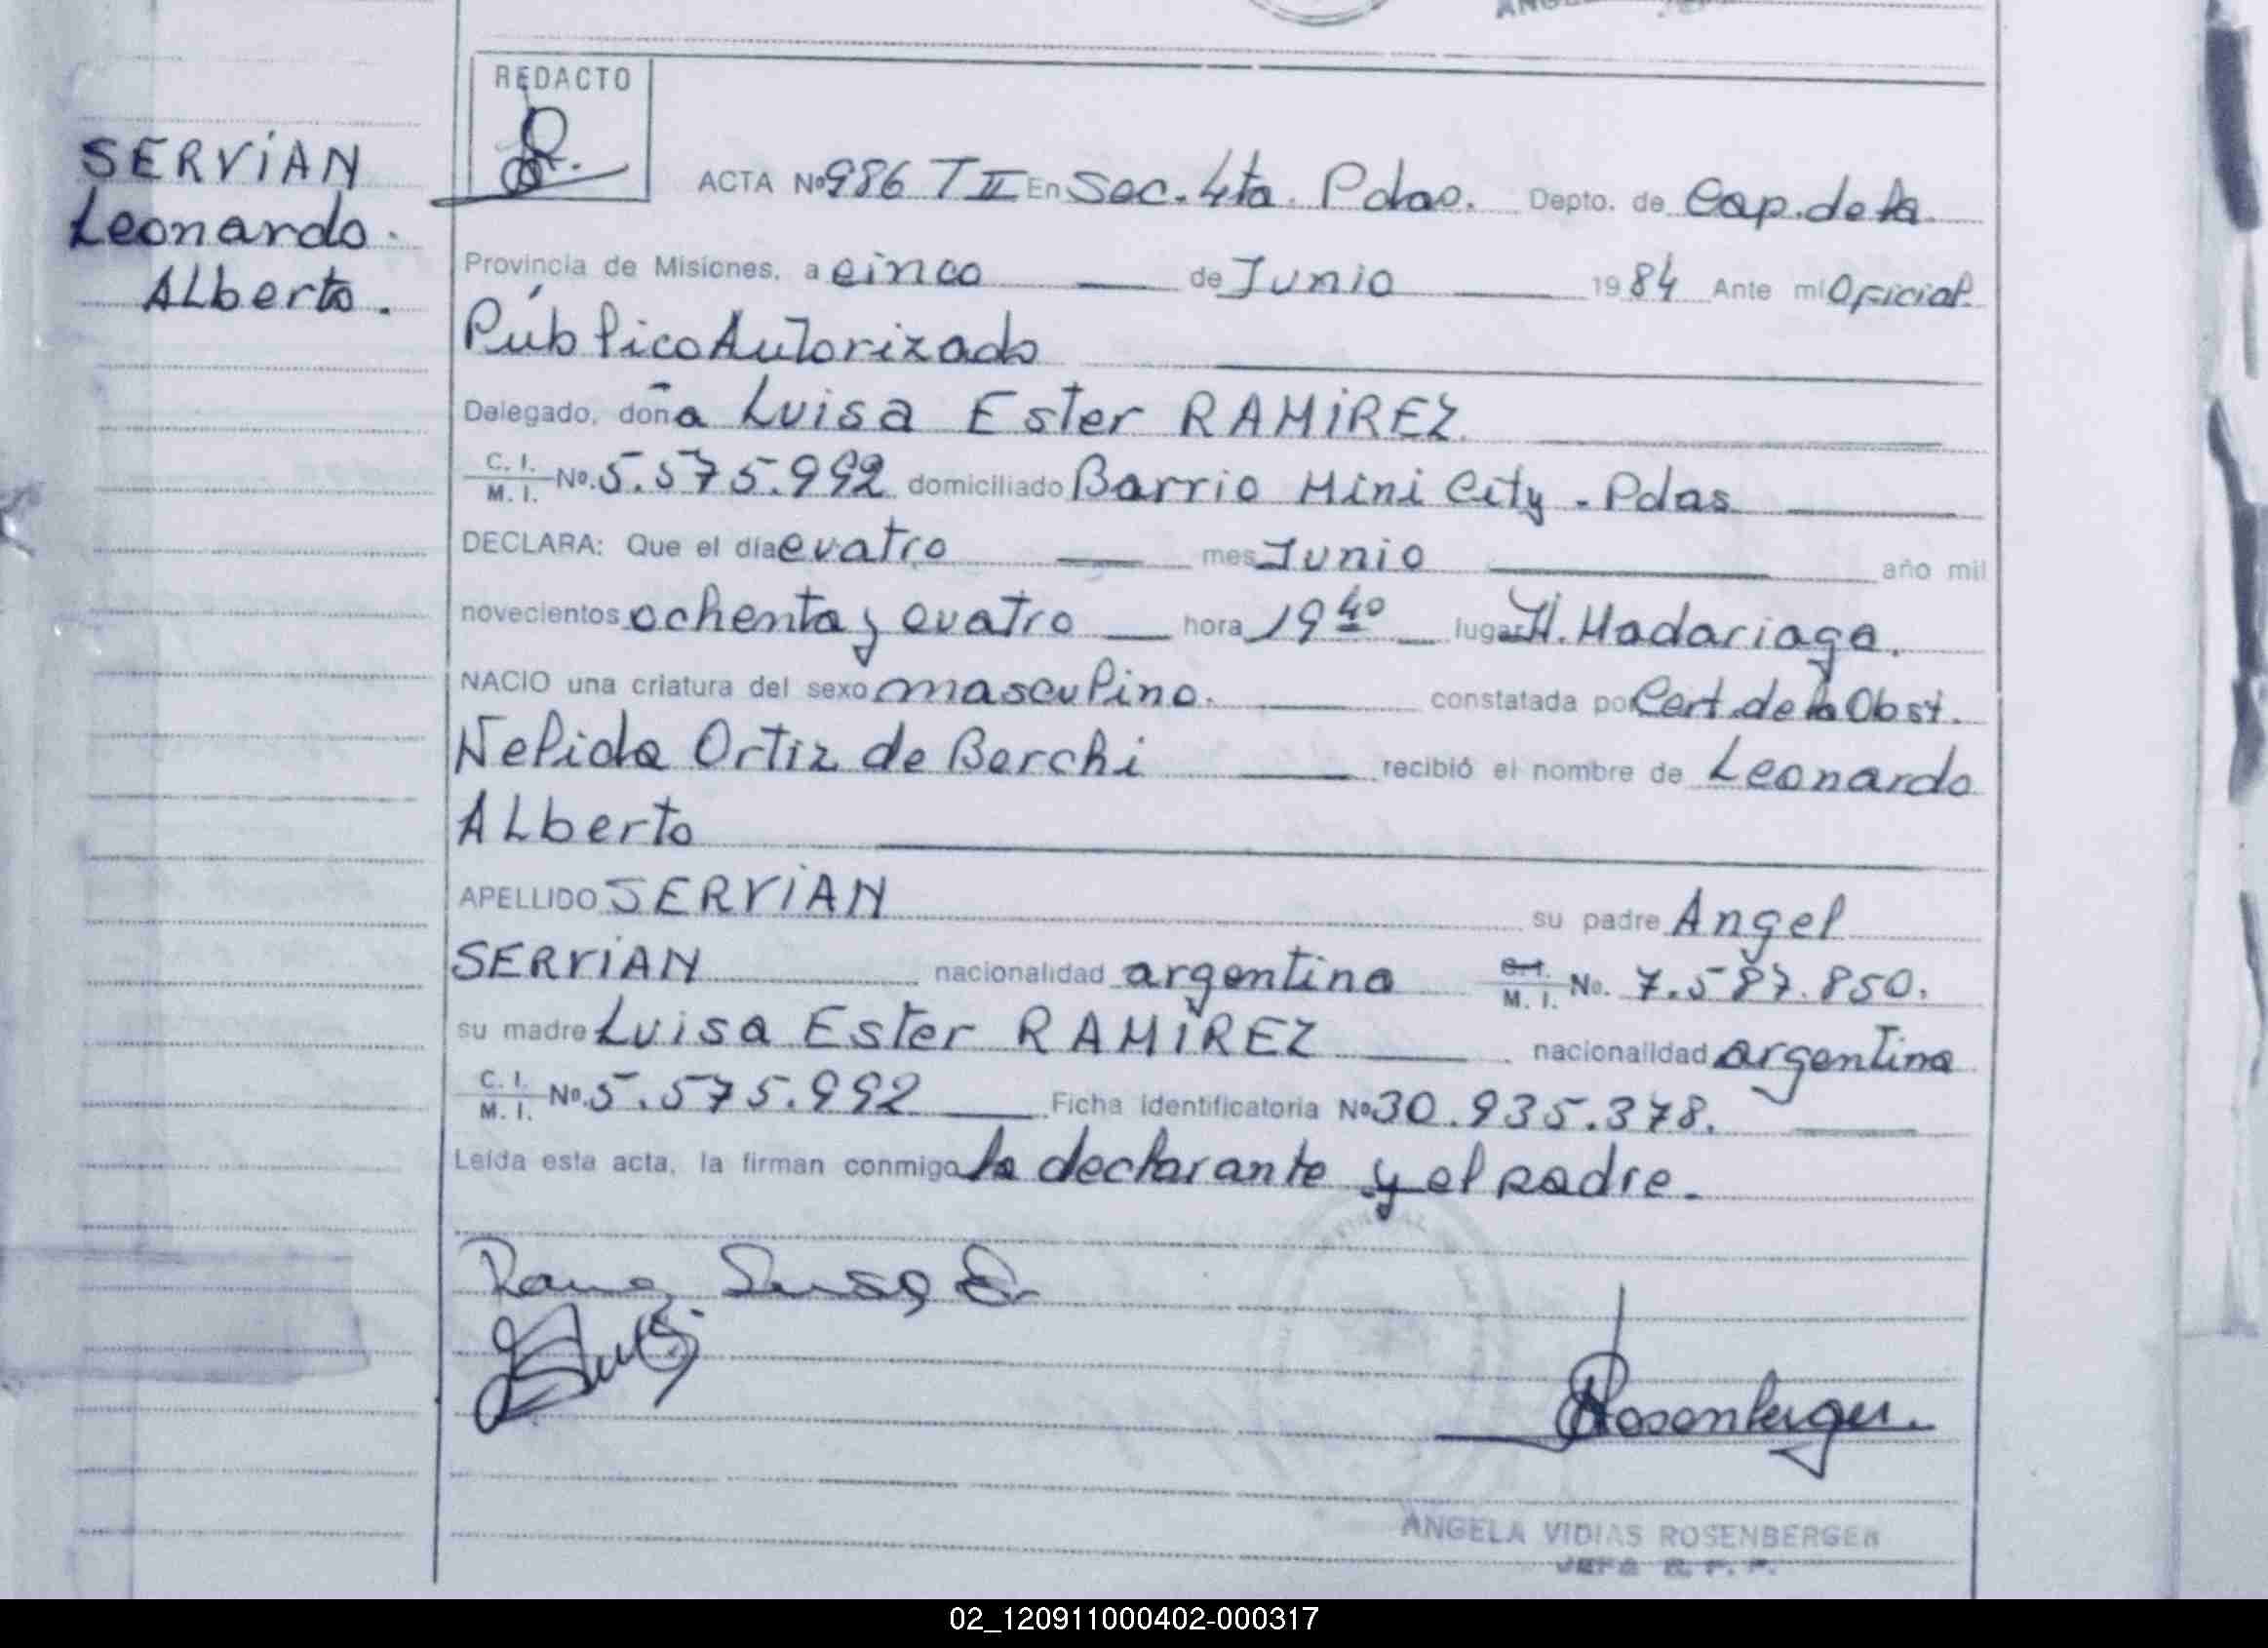 REDACTO
SERViAN
Leonardo.
ALberto.
ACTA Nº 986 T II En Sec. 4ta. Pdas. Depto. de Cap. de la
Provincia de Misiones, a cinco de Junio 1984 Ante mi Oficial
Público Autorizado
Delegado, doña Luisa Ester RAMiREZ
C. I. M. I. Nº. 5.575.992 domiciliado Barrio Mini City - Pdas
DECLARA: Que el día cuatro mes Junio año mil
novecientos ochenta y cuatro hora 19 40 lugar H. Madariaga.
NACIO una criatura del sexo masculino. constatada por Cert. de la Obst.
Nelida Ortiz de Berchi recibió el nombre de Leonardo
ALberto
APELLIDO SERViAN su padre Angel
SERViAN nacionalidad argentina C.I. M. I. No. 7.587.850.
su madre Luisa Ester RAMiREZ nacionalidad argentina
C. I. M. I. Nº. 5.575.992 Ficha identificatoria Nº 30.935.378.
Leída esta acta, la firman conmigo la declarante y el padre.
Rosenberger.
ANGELA VIDIAS ROSENBERGER
JEFA R. P. P.
02_120911000402-000317